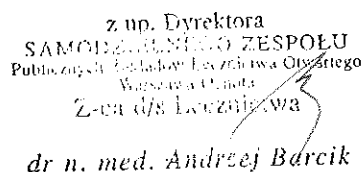 z up. Dyrektora
SAMODZIELNEGO ZESPOŁU
Publicznych Zakładów Lecznictwa Otwartego
Warszawa Ochota
Z-ca d/s Lecznictwa
dr n. med. Andrzej Barcik